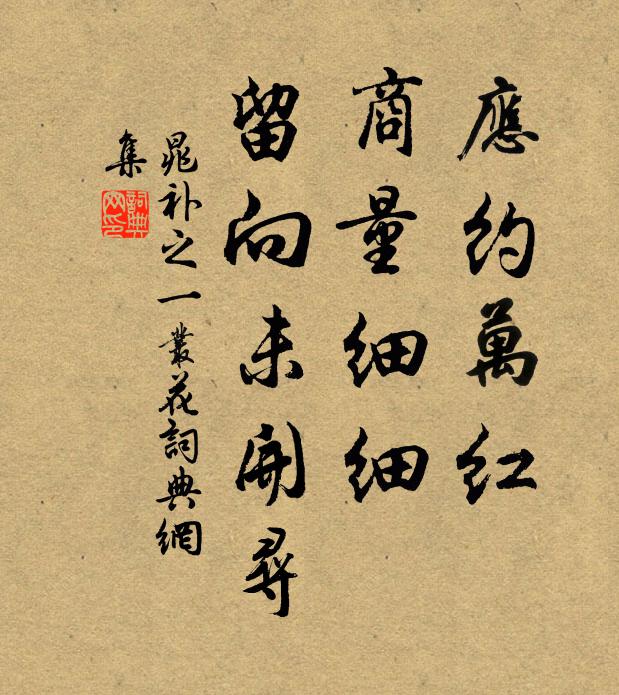 應約萬紅
商量細細
留向未開尋
晁补之一叢花詞典網
集
詞典
网印